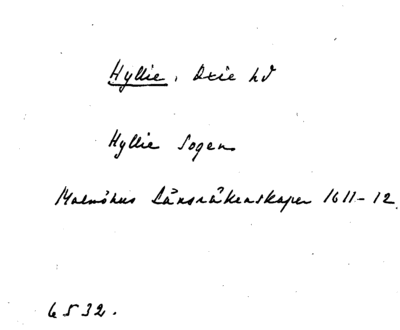 Hyllie, Oxie hd
Hyllie Sogen
Malmöhus Länsräkenskaper 1611-12
6532.